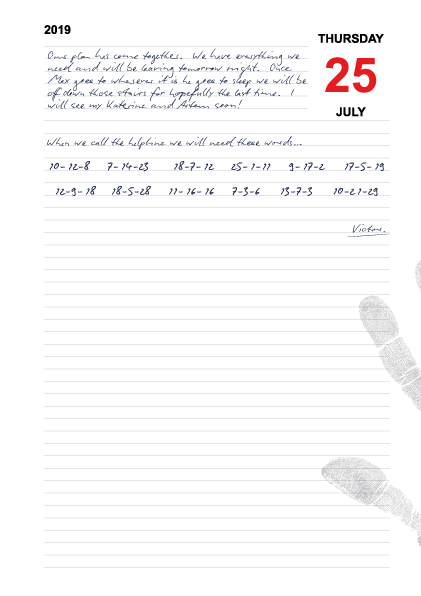 2019
THURSDAY
25
JULY
Our plan has come together. We have everything we
need and will be leaving tomorrow night. Once
Max goes to wherever it is he goes to sleep we will be
off down those stairs for hopefully the last time. I
will see my Katerine and Artem soon!
When we call the helpline we will need these words...
10-12-8 7-14-23 18-7-12 25-1-11 9-17-2 17-5-19
12-9-18 18-5-28 11-16-16 7-3-6 13-7-3 10-21-29
Victor.